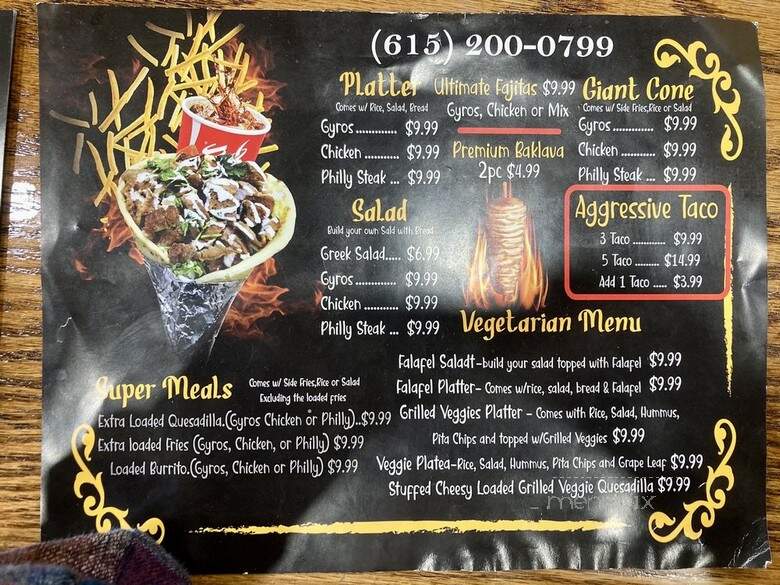 (615) 200-0799
Platter
Comes w/ Rice, Salad, Bread
Gyros............. $9.99
Chicken ........... $9.99
Philly Steak ... $9.99
Ultimate Fajitas $9.99
Gyros, Chicken or Mix
Premium Baklava
2pc $4.99
Giant Cone
Comes w/ Side Fries,Rice or Salad
Gyros............. $9.99
Chicken ........... $9.99
Philly Steak ... $9.99
Salad
Build your own Sald with Bread
Greek Salad..... $6.99
Gyros ............. $9.99
Chicken ........... $9.99
Philly Steak ... $9.99
Aggressive Taco
3 Taco ............ $9.99
5 Taco ......... $14.99
Add 1 Taco ..... $3.99
Vegetarian Menu
Falafel Saladt-build your salad topped with Falafel $9.99
Falafel Platter- Comes w/rice, salad, bread & Falafel $9.99
Grilled Veggies Platter - Comes with Rice, Salad, Hummus,
Pita Chips and topped w/Grilled Veggies $9.99
Veggie Platea-Rice, Salad, Hummus, Pita Chips and Grape Leaf $9.99
Stuffed Cheesy Loaded Grilled Veggie Quesadilla $9.99
Super Meals
Comes w/ Side Fries,Rice or Salad
Excluding the loaded fries
Extra Loaded Quesadilla.(Gyros Chicken or Philly)..$9.99
Extra loaded Fries (Gyros, Chicken, or Philly) $9.99
Loaded Burrito.(Gyros, Chicken or Philly) $9.99